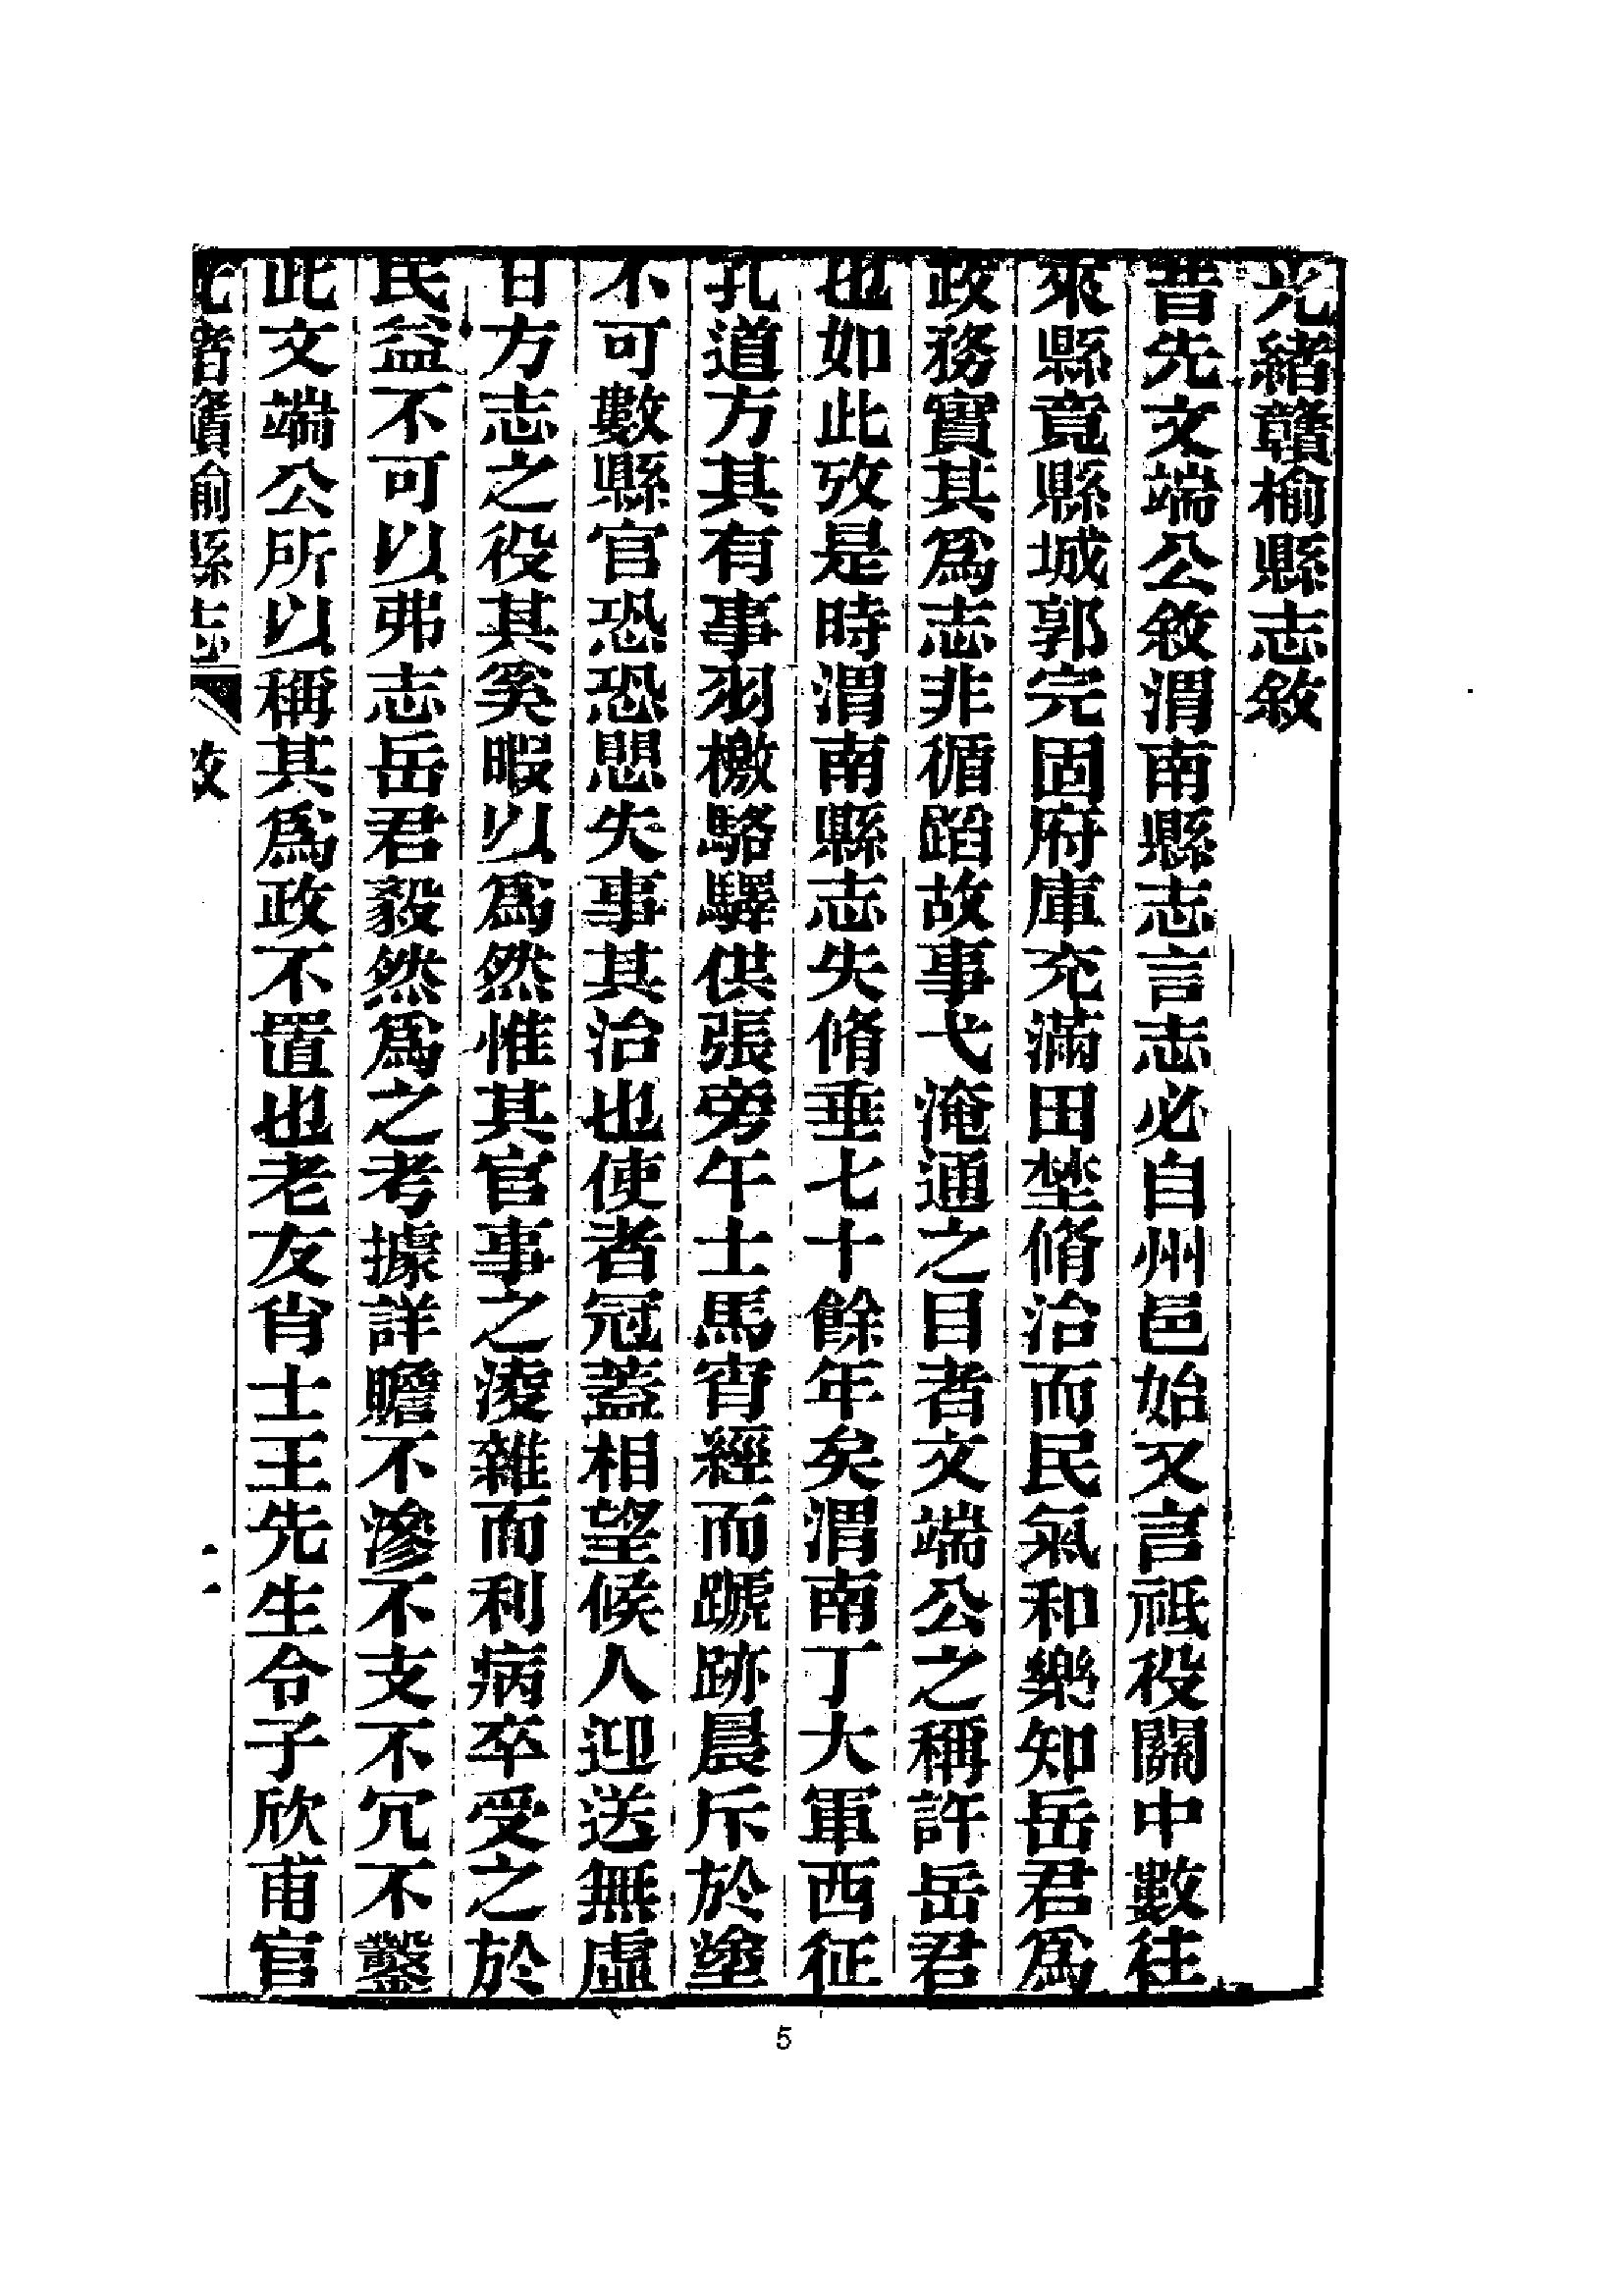 光緒贛榆縣志敘
昔先文端公敘渭南縣志言志必自州邑始又言祗役關中數往
來縣竟縣城郭完固府庫充滿田埜脩治而民氣和樂知岳君爲
政務實其爲志非循蹈故事弋淹通之目者文端公之稱許岳君
也如此攷是時渭南縣志失脩垂七十餘年矣渭南丁大軍西征
孔道方其有事羽檄駱驛供張旁午士馬宵經而蹏跡晨斥於塗
不可數縣官恐恐思失事其治也使者冠蓋相望候人迎送無虛
日方志之役其奚暇以爲然惟其官事之淩雜而利病卒受之於
民益不可以弗志岳君毅然爲之考據詳贍不滲不支不冗不鑿
此文端公所以稱其爲政不置也老友肖士王先生令子欣甫官
光緒贛榆縣志 敘 一
5